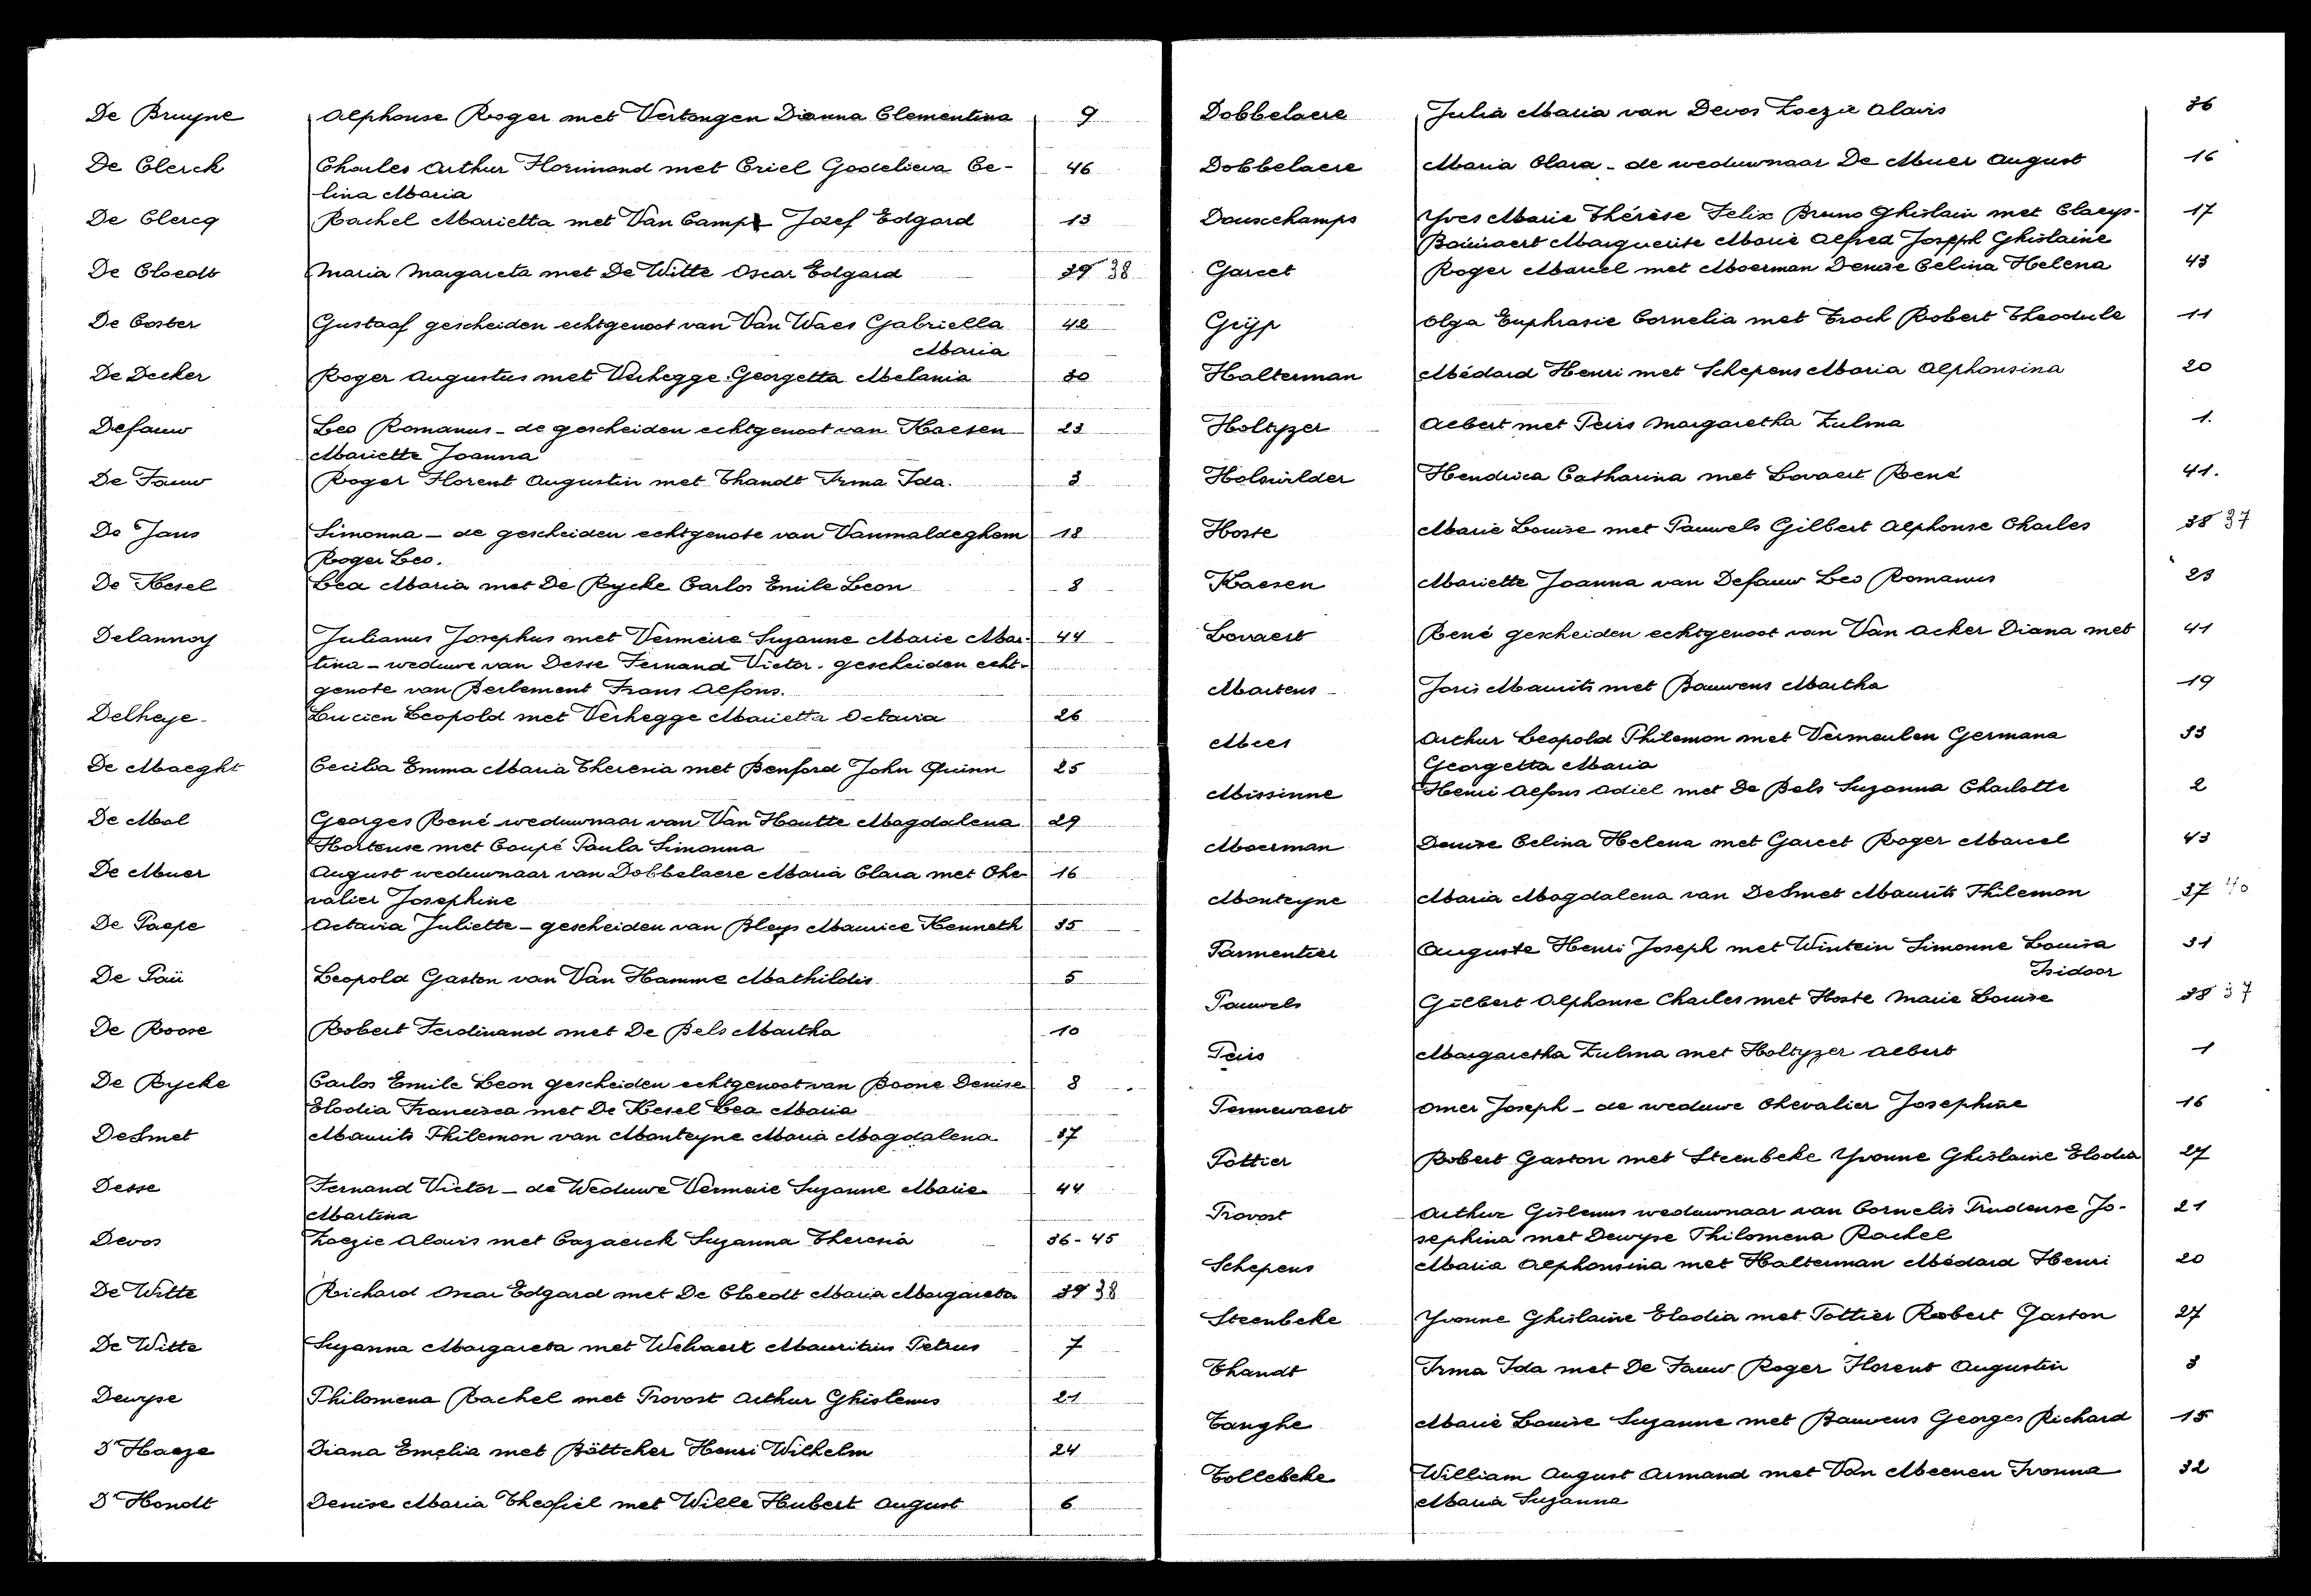 De Bruyne Alphonse Roger met Vertongen Dianna Clementina 9
De Clerck Charles Arthur Florimond met Criel Godelieva Ce- 46
lina Maria
De Clercq Rachel Marietta met Van Camp Jozef Edgard 13
De Cloedt Maria Margareta met De Witte Oscar Edgard 39 38
De Coster Gustaaf gescheiden echtgenoot van Van Waes Gabriella 42
Maria
De Decker Roger Augustus met Verhegge Georgetta Melania 30
Defauw Leo Romanus - de gescheiden echtgenoot van Kaesen 23
Mariette Joanna
De Fauw Roger Florent Augustin met Thandt Irma Ida. 3
De Jans Simonna - de gescheiden echtgenote van Vanmaldeghem 18
Roger Leo.
De Kesel Lea Maria met De Rycke Carlos Emile Leon 8
Delannoy Julianus Josephus met Vermeire Suzanne Marie Mar- 44
tina - weduwe van Desse Fernand Victor. gescheiden echt-
genote van Berlement Frans Alfons.
Delheye Lucien Leopold met Verhegge Marietta Octavia 26
De Maeght Cecilia Emma Maria Theresia met Benford John Quinn 25
De Mol Georges René weduwnaar van Van Houtte Magdalena 29
Hortense met Coupé Paula Simonna
De Muer August weduwnaar van Dobbelaere Maria Clara met Che 16
valier Josephine
De Paepe Octavia Juliette - gescheiden van Bleys Maurice Kenneth 35
De Paü Leopold Gaston van Van Hamme Mathildis 5
De Roose Robert Ferdinand met De Bels Martha 10
De Rycke Carlos Emile Leon gescheiden echtgenoot van Boone Denise 8
Elodia Francisca met De Kesel Lea Maria
DeSmet Maurits Philemon van Monteyne Maria Magdalena 37
Desse Fernand Victor - de Weduwe Vermeire Suzanne Marie 44
Martina
Devos Zoezie Alavis met Cazaerck Suzanna Theresia 36-45
De Witte Richard Oscar Edgard met De Cloedt Maria Margareta 39 38
De Witte Suzanna Margareta met Welvaert Mauritius Petrus 7
Dewyse Philomena Rachel met Provost Arthur Ghislenus 21
D'Haeze Diana Emelia met Böttcher Henri Wilhelm 24
D'Hondt Denise Maria Theofiel met Wille Hubert August 6
Dobbelaere Julia Maria van Devos Zoezie Alavis 36
Dobbelaere Maria Clara - de weduwnaar De Muer August 16
Douxchamps Yves Marie Thérèse Felix Bruno Ghislain met Claeys- 17
Boüüaert Marguerite Marie Alfred Joseph Ghislaine
Garcet Roger Marcel met Moerman Denise Celina Helena 43
Grÿp Olga Euphrasie Cornelia met Troch Robert Theodule 11
Halterman Médard Henri met Schepens Maria Alphonsina 20
Holtyzer Albert met Peirs Margaretha Zulma 1.
Holswilder Hendrica Catharina met Lovaert René 41.
Hoste Marie Louise met Pauwels Gilbert Alphonse Charles 38 37
Kaesen Mariette Joanna van Defauw Leo Romanus 23
Lovaert René gescheiden echtgenoot van Van Acker Diana met 41
Martens Joris Maurits met Bauwens Martha 19
Mees Arthur Leopold Philemon met Vermeulen Germana 33
Georgetta Maria
Missinne Henri Alfons Odiel met De Bels Suzanna Charlotte 2
Moerman Denise Celina Helena met Garcet Roger Marcel 43
Monteyne Maria Magdalena van DeSmet Maurits Philemon 37 40
Parmentier Auguste Henri Joseph met Wintein Simonne Louisa 31
Isidoor
Pauwels Gilbert Alphonse Charles met Hoste Marie Louise 38 37
Peirs Margaretha Zulma met Holtyzer Albert 1
Pennewaert Omer Joseph - de weduwe Chevalier Josephine 16
Pottier Robert Gaston met Steenbeke Yvonne Ghislaine Elodia 27
Provost Arthur Gislenus weduwnaar van Cornelis Prudense Jo- 21
sephina met Dewyse Philomena Rachel
Schepens Maria Alphonsina met Halterman Médard Henri 20
Steenbeke Yvonne Ghislaine Elodia met Pottier Robert Gaston 27
Thandt Irma Ida met De Fauw Roger Florent Augustin 3
Tanghe Marie Louise Suzanne met Bauwens Georges Richard 15
Tollebeke William August Armand met Van Meenen Ivonna 32
Maria Suzanna